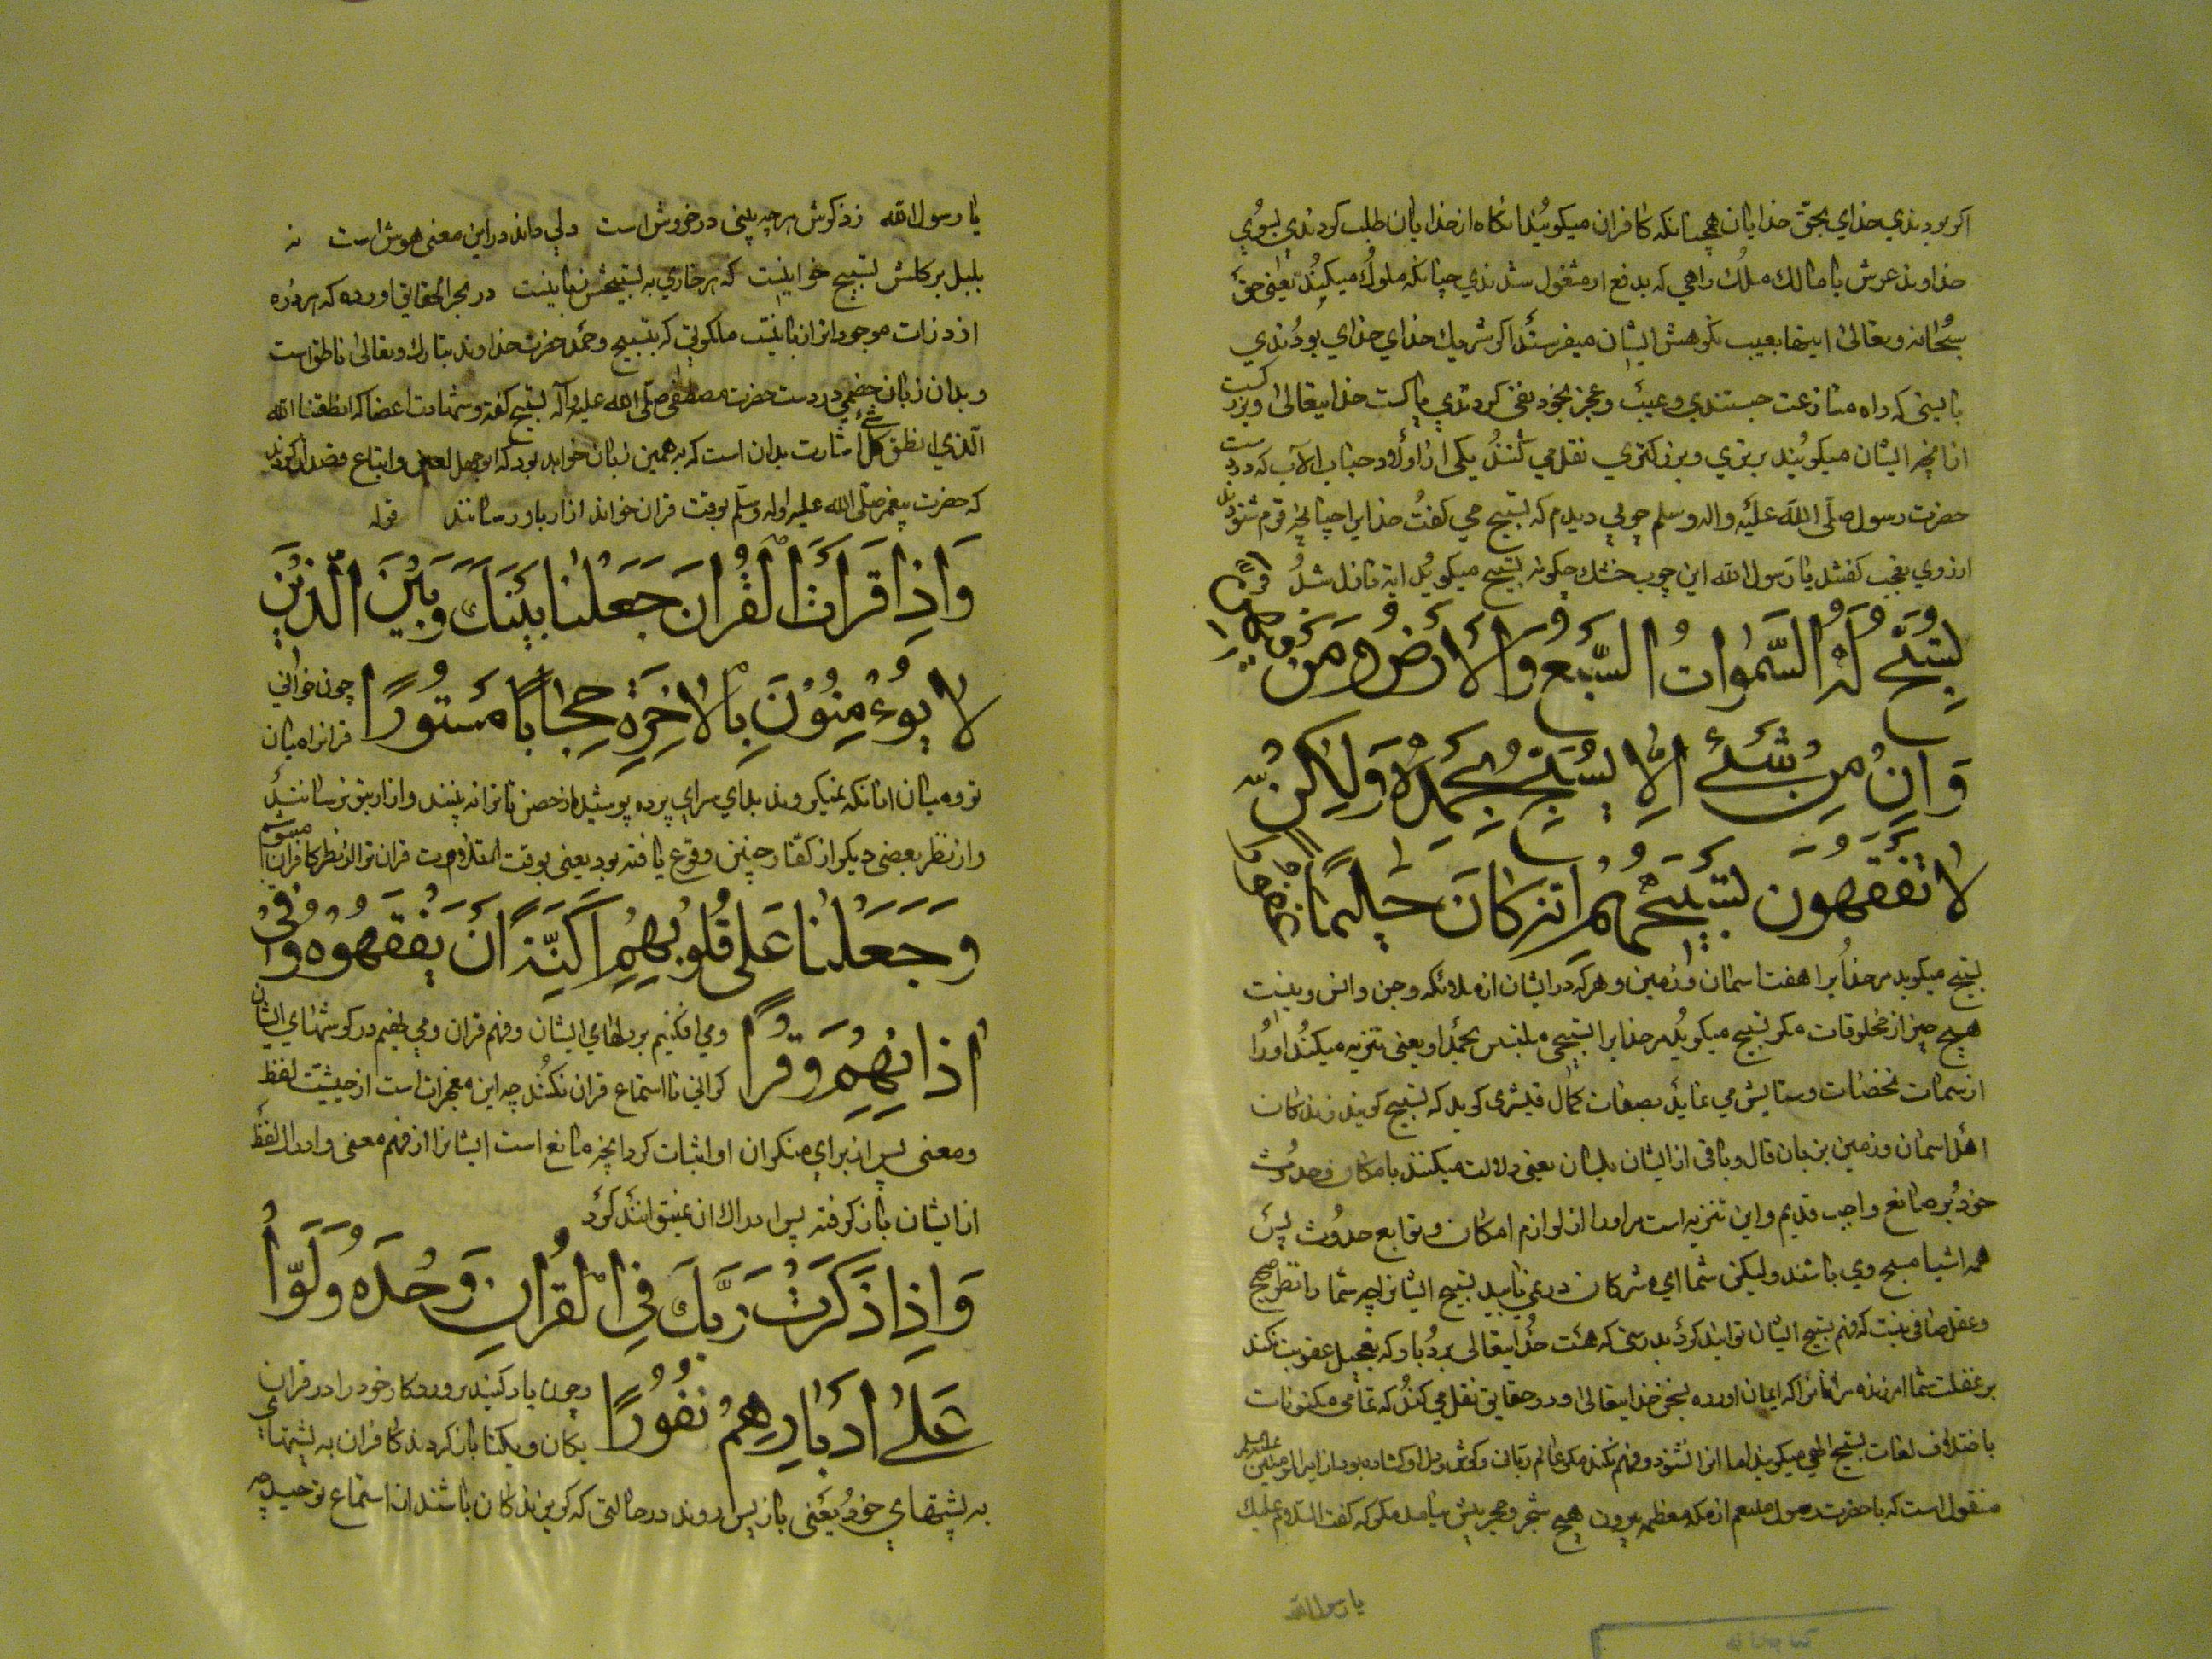 اکر بودندي خداي بحقّ خدایان همچنانکه کافران میکویُند انکاه ازخدایان طلب کردندي بسوُي
خداوند عرش یا مالك ملُك راهي که بدفع او مشغول شدندي چنانکه ملوُك میکنُند یعنی حق
سُبحانه وتعالیٰ اینها بعیب نکوهش ایشان میفرستد اکر شریك خداي خداي بودُندي
بایستی که راه منازعت جستندي وعیب وعجز بخود نفی کردندي پاکست خدایتعالیٰ وبزر
کست
ازانچه ایشان میکویُند برتري وبزرکتري نقل مي کنندُ یکی ازاولاد
حضرت رسول صلّی اللّه علیْه واله وسلم چوبي دیدم که تسبیح مي کفتُ خدایرا چنانچه قوم شنودند
ازروي تعجب کفتند یا رَسول الله این چوب خشك چکونه تسبیح میکویُد ایة نازل شدُ قوله
تُسَبِّحُ لَهُ السَّمٰوَاتُ السَّبْعُ وَالْاَرْضُ وَمَنْ فِیهِنَّ
وَاِنْ مِنْ شَیْءٍ اِلَّا یُسَبِّحُ بِحَمْدِهٖ وَلٰکِنْ
لَا تَفْقَهُونَ تَسْبِیحَهُمْ اِنَّهُ کَانَ حَلِیمًا غَفُورًا
تسبیح میکوید مر خدایرا هفت اسمان وزمین وهرکه در ایشان از ملائکه وجن وانس ونیست
هیچ چیز از مخلوقات مکر تسبیح میکویُد مر خدایرا تسبیحی ملتبس بحمد او یعنی تنزیه میکنُد اورا
از سمات نقصات وستایش مي نماید بصفات کمال قشیری کوید که تسبیح کویند زندکان
اهل اسمان وزمین بزبان قال وباقی از ایشان بلسان یعنی دلالت میکنند بامکان وحدوُث
خود بُر صانع واجب قدیم واین تنزیه است مر اورا از لوازم امکان وتوابع حدوُث پسَ
همه اشیا مسبح وي باشند ولیکن شما اي مشرکان در نمي یابید تسبیح ایشانرا چه شما را نظر صحیح
وعقل صافی نیست که فهم تسبیح ایشان توانید کرد بدرستی که هست خدُایتعالی بردُبار که بتعجیل عقوبت نکند
بر غفلت شما امرزنده مر انانرا که ایمان اورده بخق خدایتعالیٰ ودر حقایق نقل مي کندُ که تمامی مکنونات
باختلاف لغات تسبیح الهی میکویند اما انرا نشنود وفهم نکند مکر عالم ربانی وکوش دل او کشاده بود از امیر المومنین علیه السلام
منقول است که با حضرت رسول صلعم از مکه معظمه بیرون هیچ شجر وحجر پیش نیامد مکر که کفت السلام علیك
یا رسول الله
کتابخانه
یا رسول الله زذکرش هرچه بینی در خروش است دلي داند دراین معنی هوش است نه
بلبل بر کلش تسبیح خوانیست که هر خاري به تسبیحش زبانیست در بحر الحقایق اورده که هر ذره
از ذرات موجود انرا زبانیست ملکوتي که بتسبیح وحمد حضرت خداوند تبارك وتعالیٰ ناطق است
وبدان زبان حضی در دست حضرت مصطفیٰ صلّی الله علیه وآله تسبیح کفته وشهادت اعضا که انطقنا الله
الّذي انطق کلّ شئ اشارت بدان است که به همین زبان خواهد بود که ابو جهل لعین واتباع قصد ان کردند
که حضرت پیغمبر صلّی الله علیه واله وسلّم بوقت قران خواند ازار باو رسانند قوله
وَاِذَا قَرَاْتَ الْقُرْاٰنَ جَعَلْنَا بَیْنَكَ وَبَیْنَ الَّذِیْنَ
لَا یُوءْمِنُوْنَ بِالْاٰخِرَةِ حِجَابًا مَسْتُورًا چون خوانی
قرانرا میان
تو ومیان انانکه نمیکروند بداي سراي پرده پوشیده از حس تا ترا نه بینند وازار بتو نرسانند
واز نظر بعضی دیکر از کفّار چنین وقوع یافته بود یعنی بوقت تلاوت قران ترا از نظر کافران
وَجَعَلْنَا عَلیٰ قُلُوْبِهِمْ اَکِنَّةً اَنْ یَفْقَهُوْهُ وَفِیْ
اٰذَانِهِمْ وَقْرًا ومي افکنیم بر دلهاي ایشان وفهم قران ومي نهیم در کوشهاي ایشان
کرانی تا استماع قران نکنُند چه این معجزات است از حیثیّت لفظ
ومعنی پس از براي منکران او اثبات کرد انچه مانع است ایشانرا از فهم معنی وادراك لفظ
از ایشان باز کرفته پس ادراك ان نمیتوانند کرد
وَاِذَا ذَکَرْتَ رَبَّكَ فِی الْقُرْاٰنِ وَحْدَهُ وَلَّوْا
عَلیٰ اَدْبَارِهِمْ نُفُورًا وچون یاد کنید پروردکار خود را در قران
یکان ویکتا باز کردند کافران به پشتهاي
به پشتهاي خود یعنی باز پس روند در حالتی که کریزندکان باشند از استماع توحید چه